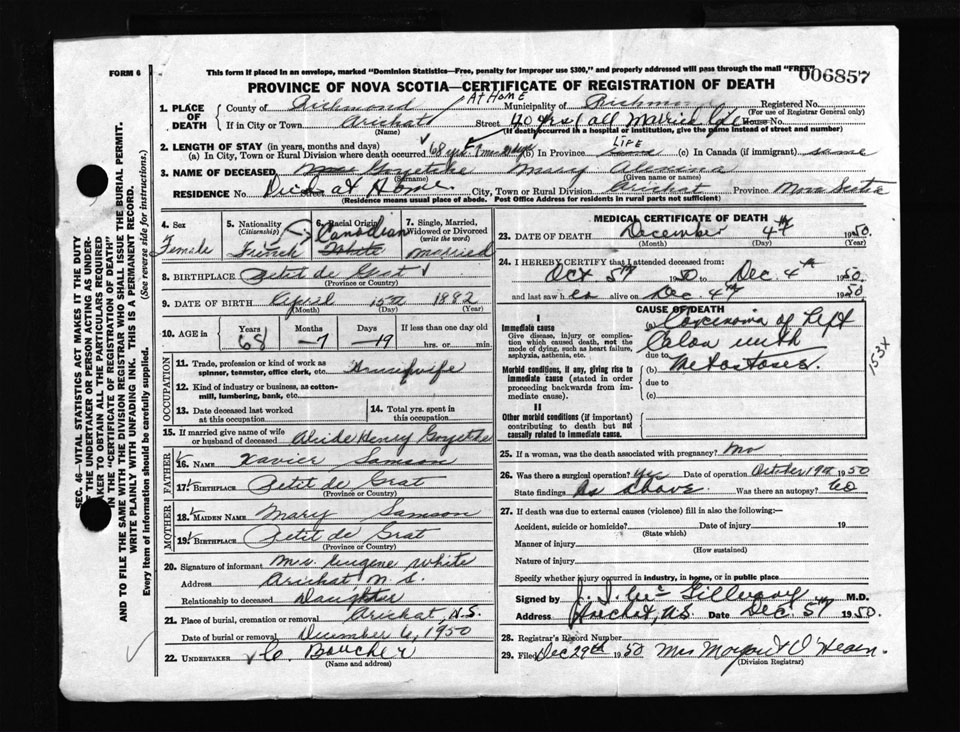 FORM 6
This form if placed in an envelope, marked "Dominion Statistics—Free, penalty for improper use $300," and properly addressed will pass through the mail "FREE"
006857
PROVINCE OF NOVA SCOTIA—CERTIFICATE OF REGISTRATION OF DEATH
1. PLACE OF DEATH
County of Richmond
AT HOME
Municipality of Richmond
Registered No.
(For use of Registrar General only)
If in City or Town Arichat
(Name)
Street
House No.
(If death occurred in a hospital or institution, give the name instead of street and number)
2. LENGTH OF STAY (in years, months and days)
(a) In City, Town or Rural Division where death occurred 68 yrs.
(b) In Province LIFE
(c) In Canada (if immigrant) same
3. NAME OF DECEASED Mary
(Given name or names)
RESIDENCE Died at Home.
City, Town or Rural Division Arichat Province Nova Scotia
(Residence means usual place of abode. Post Office Address for residents in rural parts not sufficient)
4. Sex
Female
5. Nationality
(Citizenship)
French
6. Racial Origin
Canadian
White
7. Single, Married, Widowed or Divorced
(write the word)
Married
8. BIRTHPLACE Petit de Grat
(Province or Country)
9. DATE OF BIRTH April 15th 1882
(Month) (Day) (Year)
10. AGE in
Years Months Days
68 -7 -19
If less than one day old
hrs. or min.
OCCUPATION
11. Trade, profession or kind of work as spinner, teamster, office clerk, etc. Housewife
12. Kind of industry or business, as cotton-mill, lumbering, bank, etc.
13. Date deceased last worked at this occupation
14. Total yrs. spent in this occupation
15. If married give name of wife or husband of deceased Henry
FATHER
16. NAME Xavier Samson
17. BIRTHPLACE Petit de Grat
MOTHER
18. MAIDEN NAME Mary Samson
19. BIRTHPLACE Petit de Grat
(Province or Country)
20. Signature of informant Mrs. Eugene White
Address Arichat N.S.
Relationship to deceased Daughter
21. Place of burial, cremation or removal Arichat, N.S.
Date of burial or removal December 6, 1950
22. UNDERTAKER C. Boucher
(Name and address)
MEDICAL CERTIFICATE OF DEATH
23. DATE OF DEATH December 4th 1950.
(Month) (Day) (Year)
24. I HEREBY CERTIFY that I attended deceased from:
Oct 5th 1950 to Dec. 4th 1950.
and last saw h alive on Dec. 4th 1950
CAUSE OF DEATH
I
Immediate cause
Give disease, injury or complication which caused death, not the mode of dying, such as heart failure, asphyxia, asthenia, etc.
(a) Carcinoma of Left
Colon with
due to
Metastases.
Morbid conditions, if any, giving rise to immediate cause (stated in order proceeding backwards from immediate cause).
(b)
due to
(c)
II
Other morbid conditions (if important) contributing to death but not causally related to immediate cause.
153X
25. If a woman, was the death associated with pregnancy? no
26. Was there a surgical operation? yes Date of operation October 19th 1950
State findings As above. Was there an autopsy?
27. If death was due to external causes (violence) fill in also the following:—
Accident, suicide or homicide? Date of injury 19
(State which)
Manner of injury
(How sustained)
Nature of injury
Specify whether injury occurred in industry, in home, or in public place
Signed by M.D.
Address Date Dec. 5th 1950.
28. Registrar's Record Number
29. Filed Dec 29th 1950 Mrs O'Hearn.
(Division Registrar)
SEC. 46—VITAL STATISTICS ACT MAKES IT THE DUTY
OF THE UNDERTAKER OR PERSON ACTING AS UNDER-
TAKER TO OBTAIN ALL THE PARTICULARS REQUIRED
IN THE "CERTIFICATE OF REGISTRATION OF DEATH"
AND TO FILE THE SAME WITH THE DIVISION REGISTRAR WHO SHALL ISSUE THE BURIAL PERMIT.
WRITE PLAINLY WITH UNFADING INK. THIS IS A PERMANENT RECORD.
Every item of information should be carefully supplied. (See reverse side for instructions.)